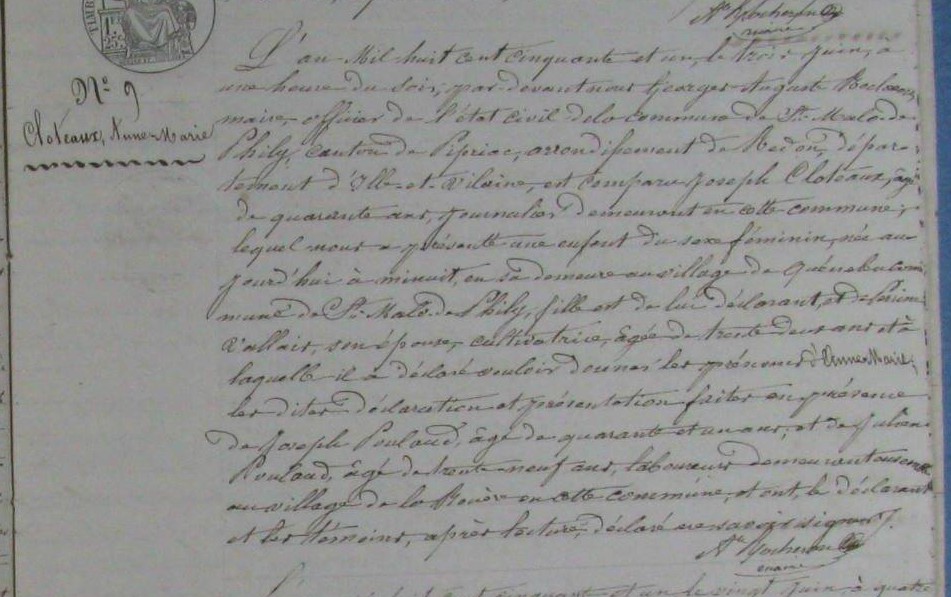 TIMB
25
maire
L'an Mil huit cent cinquante et un, le trois Juin, à
N° 9
une heure du soir, par-devant nous Georges Auguste
Cloteaux, Anne-Marie
maire, officier de l'état civil de la commune de St Malo-de
Phily, canton de Pipriac, arrondissement de Redon, dépar-
tement d'Ille-et-Vilaine, est comparu Joseph Cloteaux, agé
de quarante ans, journalier demeurant en cette commune,
lequel nous a présenté une enfant du sexe féminin, née au-
jourd'hui à minuit, en sa demeure au village de com-
mune de St Malo-de-Phily, fille est de lui déclarant, et de Perrine
Vallais, son épouse, cultivatrice, âgée de trente deux ans et à
laquelle il a déclaré vouloir donner les prénoms d'Anne-Marie,
les dites déclaration et présentation faites en présence
de Joseph Poulaud, âgé de quarante et un ans, et de Julien
Poulaud, âgé de trente-neuf ans, laboureurs demeurant ensemble
au village de la en cette commune, et ont, le déclarant
et les témoins, après lecture, déclaré ne savoir signer.
maire
cinquante et un le vingt Juin, à quatre